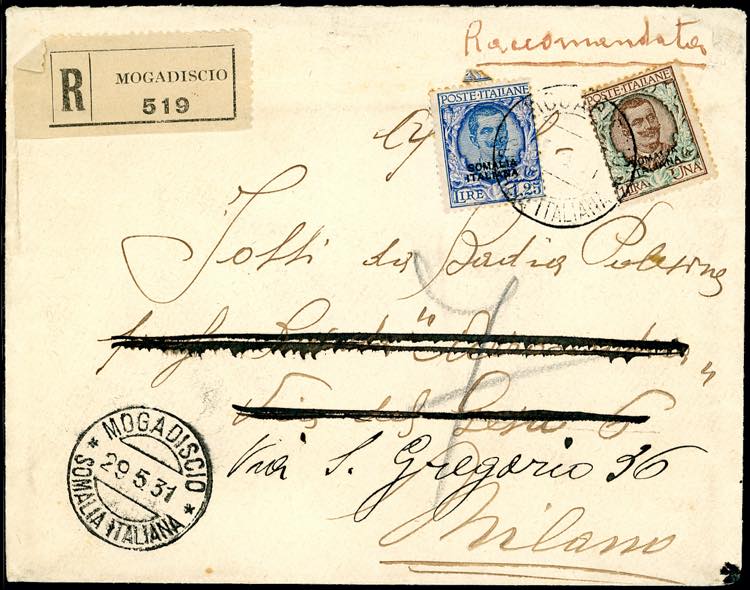 Raccomandata
R MOGADISCIO
519
POSTE·ITALIANE
SOMALIA
ITALIANA
LIRE 1,25
POSTE·ITALIANE
SOMALIA
LIRA UNA
ITALIANA
Totti da Badia Polesine
Via del Gesù 6
Via S. Gregorio 36
Milano
* MOGADISCIO *
29.5.31
SOMALIA ITALIANA